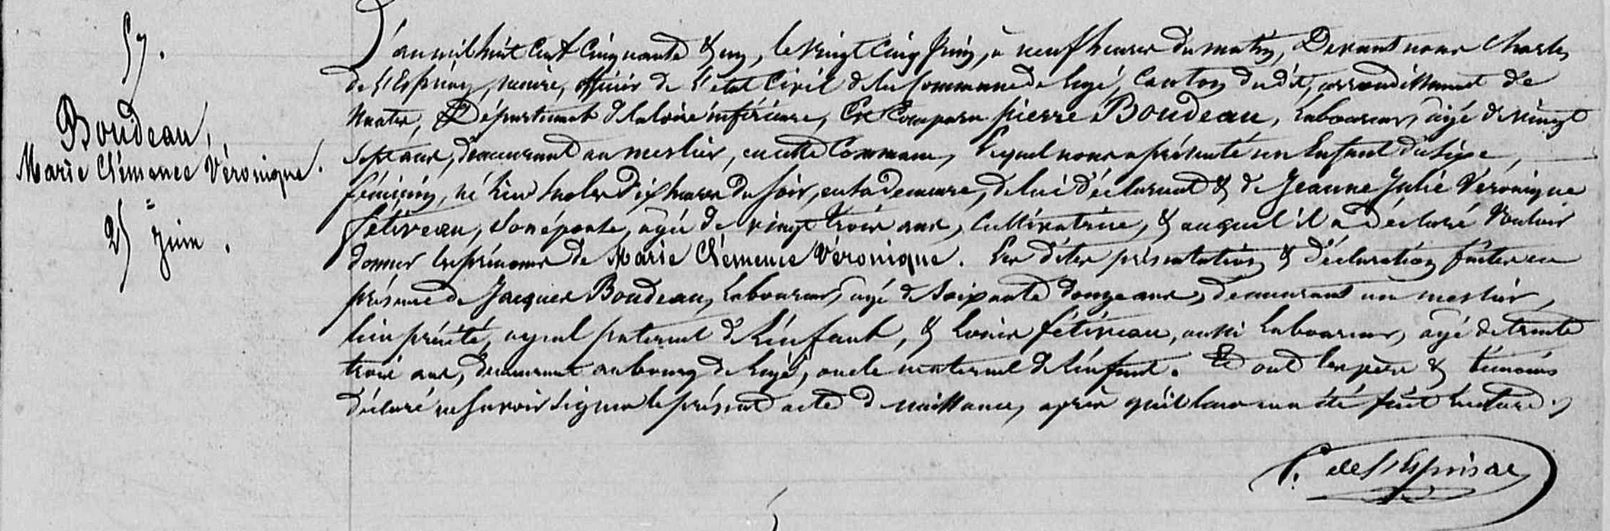 57.
Boudeau,
Marie Clémence Véronique.
25 juin.
L'an mil huit cent cinquante & un, le vingt cinq Juin, à neuf heures du matin, Devant nous Charles
de l'Esprony, maire, officier de l'état civil de la Commune de Legé, Canton dudit, arrondissement de
Nantes, Département de la loire inférieure, Est Comparu pierre Boudeau, laboureur, âgé de vingt
sept ans, demeurant au meslier, en cette Commune, lequel nous a présenté un Enfant du sexe
féminin, né hier sur les dix heures du soir, en sa demeure, de lui déclarant & de Jeanne Julie Véronique
fétiveau, son épouse, âgée de vingt trois ans, cultivatrice, & auquel il a déclaré vouloir
donner les prénoms de Marie Clémence Véronique. Les dites présentation & déclaration faites en
présence de Jacques Boudeau, laboureur, âgé de soixante douze ans, demeurant au meslier,
lieu précité, ayeul paternel de l'enfant, & Louis fétiveau, aussi laboureur, âgé de trente
trois ans, demeurant au bourg de Legé, oncle maternel de l'enfant. Et ont les père & témoins
déclaré ne savoir signer le présent acte de naissance, après qu'il leur en a été fait lecture.